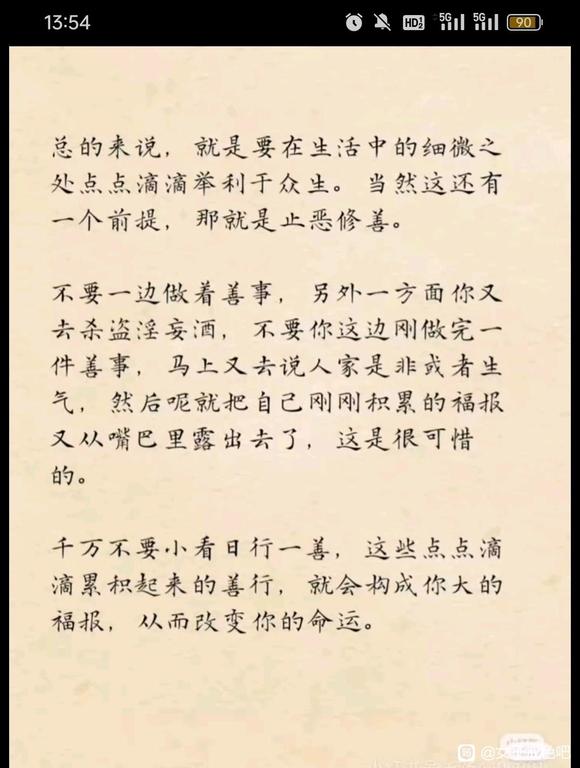 13:54
HD 1 2
5G
5G
90
总的来说，就是要在生活中的细微之
处点点滴滴举利于众生。当然这还有
一个前提，那就是止恶修善。
不要一边做着善事，另外一方面你又
去杀盗淫妄酒，不要你这边刚做完一
件善事，马上又去说人家是非或者生
气，然后呢就把自己刚刚积累的福报
又从嘴巴里露出去了，这是很可惜
的。
千万不要小看日行一善，这些点点滴
滴累积起来的善行，就会构成你大的
福报，从而改变你的命运。